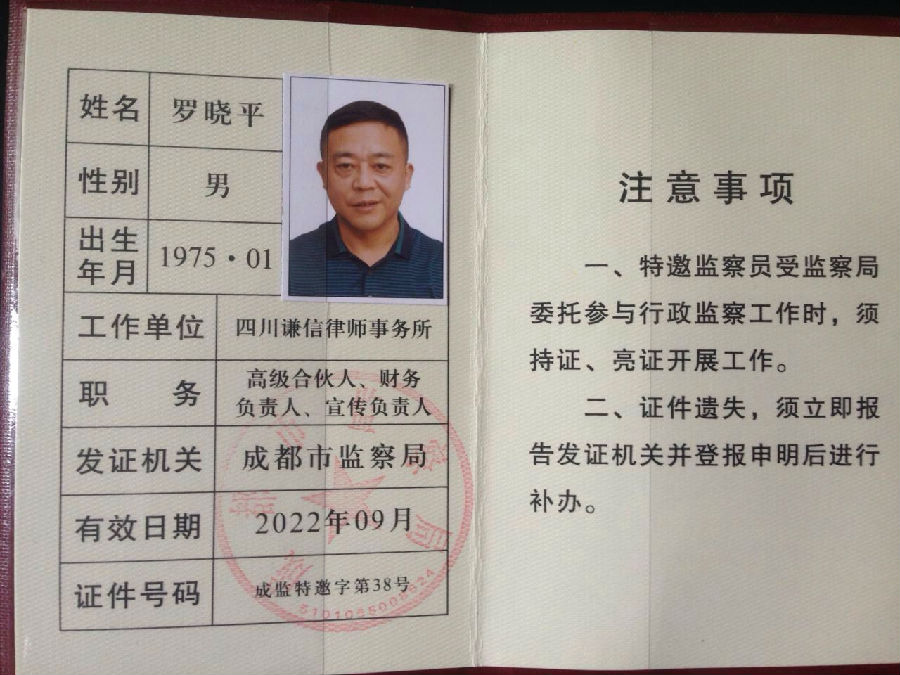 姓名 罗晓平
性别 男
出生年月 1975·01
工作单位 四川谦信律师事务所
职务 高级合伙人、财务
负责人、宣传负责人
发证机关 成都市监察局
有效日期 2022年09月
证件号码 成监特邀字第38号
注意事项
一、特邀监察员受监察局
委托参与行政监察工作时，须
持证、亮证开展工作。
二、证件遗失，须立即报
告发证机关并登报申明后进行
补办。